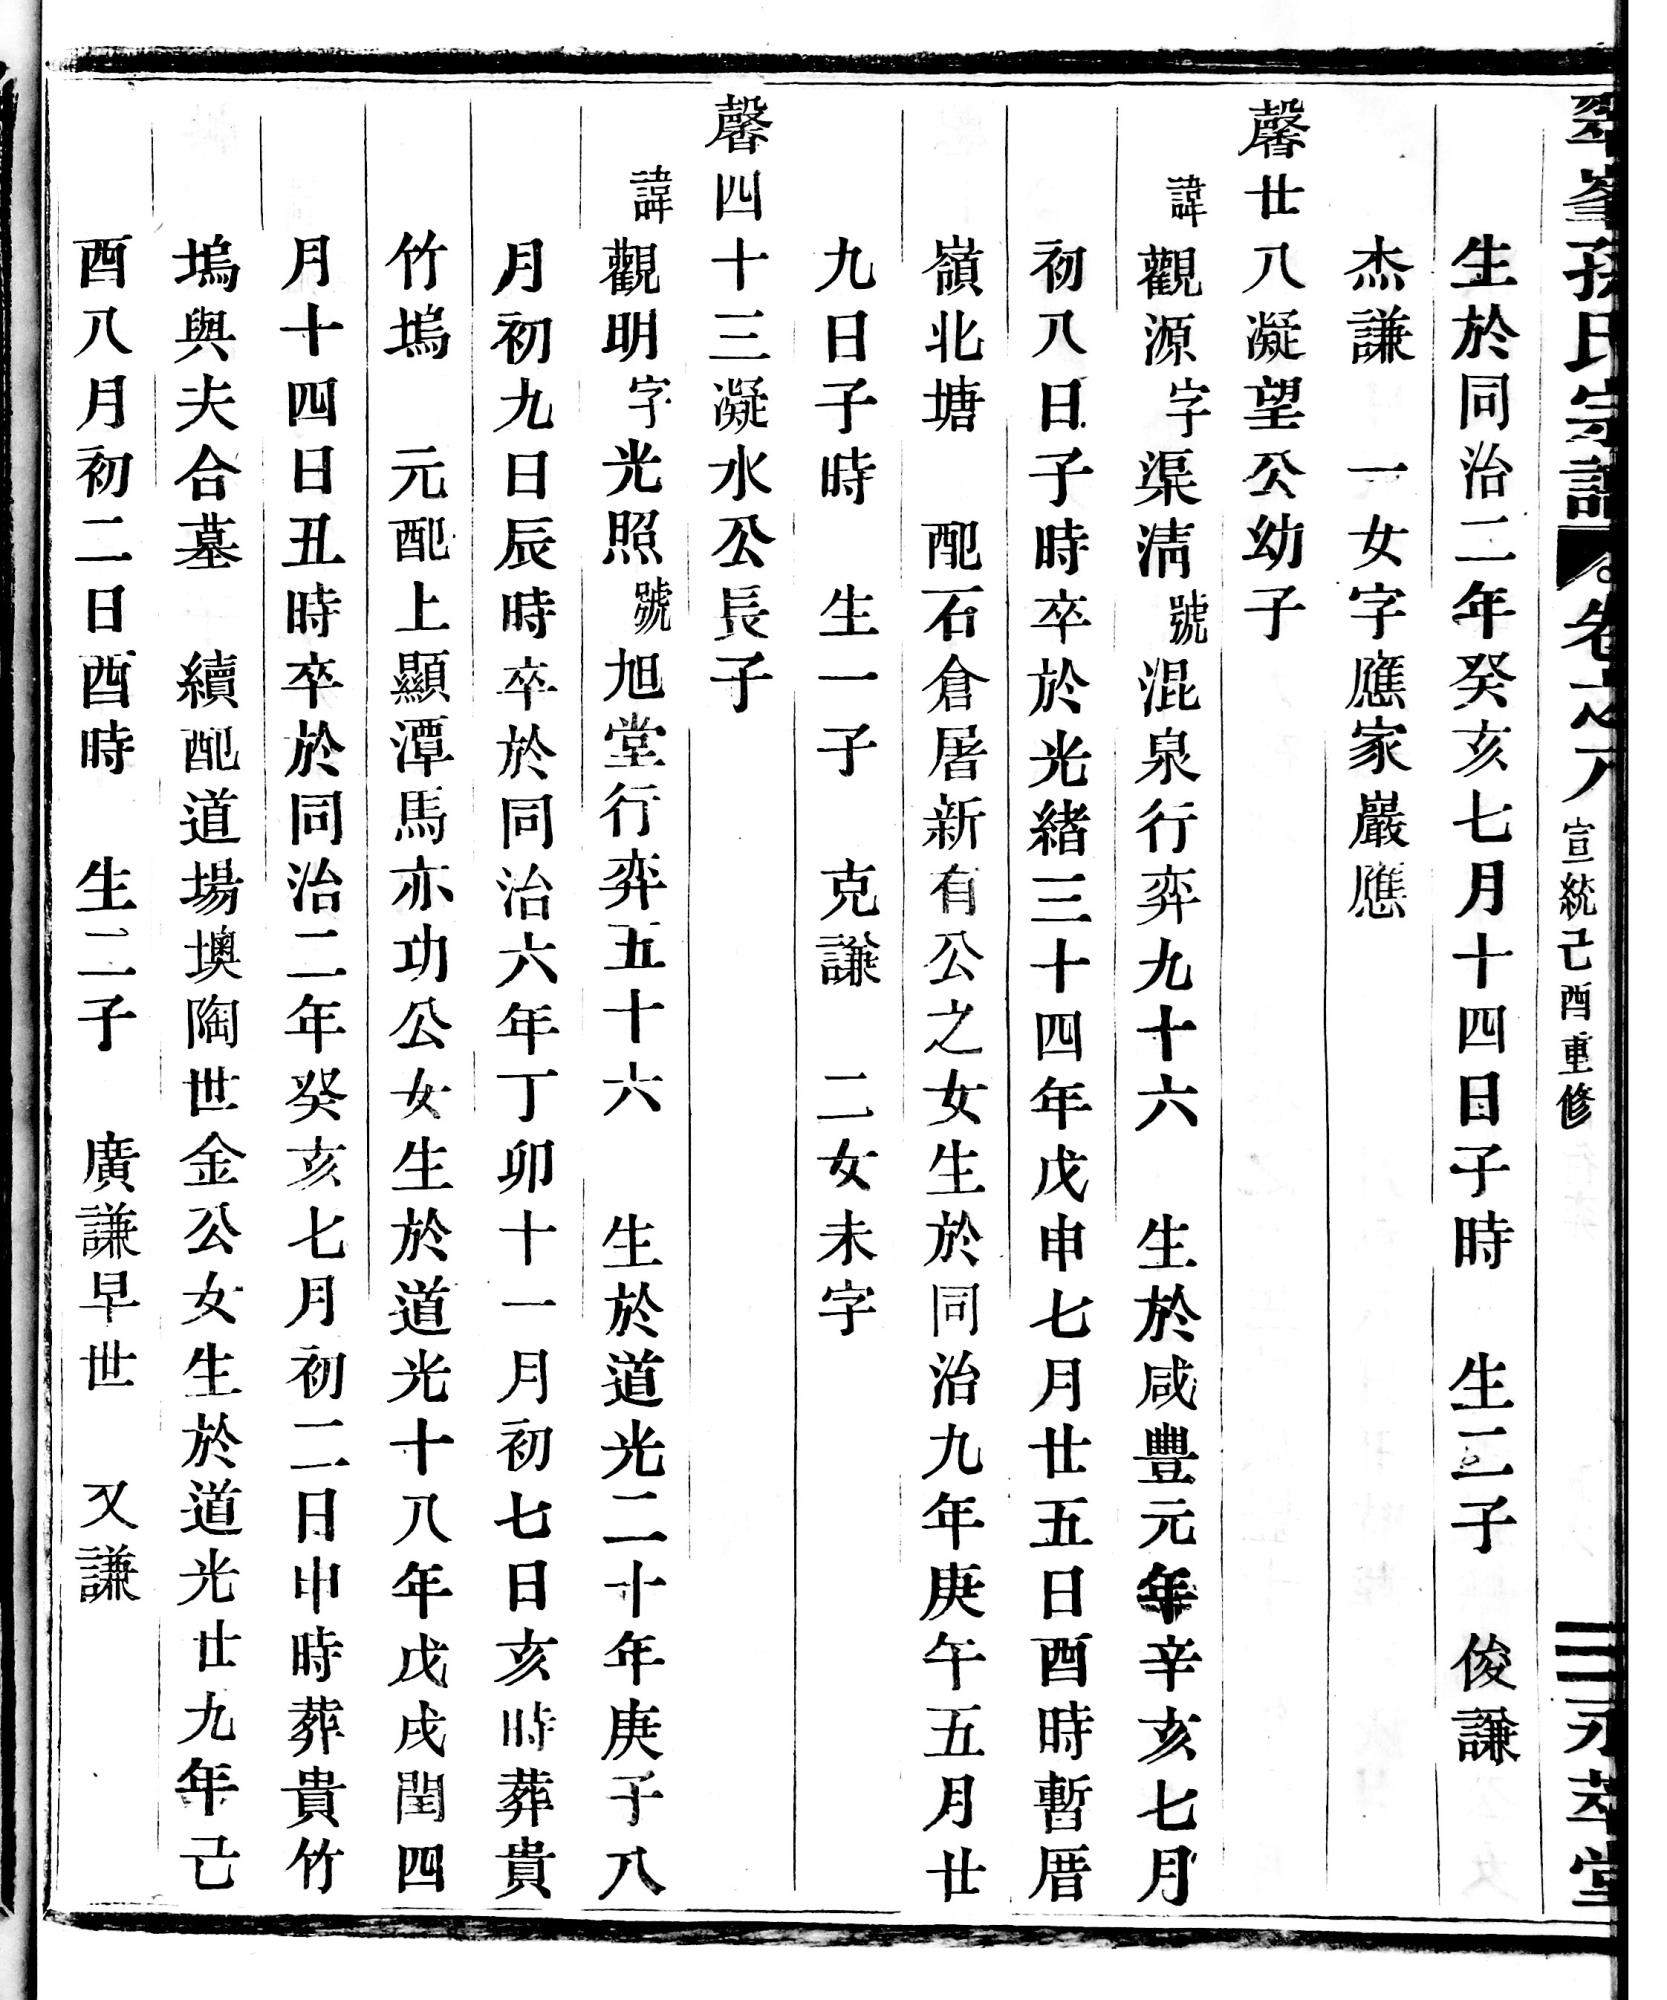 翠峯孫氏宗譜 卷之八 宣統己酉重修 永萃堂
生於同治二年癸亥七月十四日子時 生二子 俊謙
杰謙 一女字應家巖應
馨廿八凝望公幼子
諱觀源字渠清號混泉行弈九十六 生於咸豐元年辛亥七月
初八日子時卒於光緒三十四年戊申七月廿五日酉時暫厝
嶺北塘 配石倉屠新有公之女生於同治九年庚午五月廿
九日子時 生一子 克謙 二女未字
馨四十三凝水公長子
諱觀明字光照號旭堂行弈五十六 生於道光二十年庚子八
月初九日辰時卒於同治六年丁卯十一月初七日亥時葬貴
竹塢 元配上顯潭馬亦功公女生於道光十八年戊戌閏四
月十四日丑時卒於同治二年癸亥七月初二日申時葬貴竹
塢與夫合墓 續配道場墺陶世金公女生於道光廿九年己
酉八月初二日酉時 生二子 廣謙早世 又謙